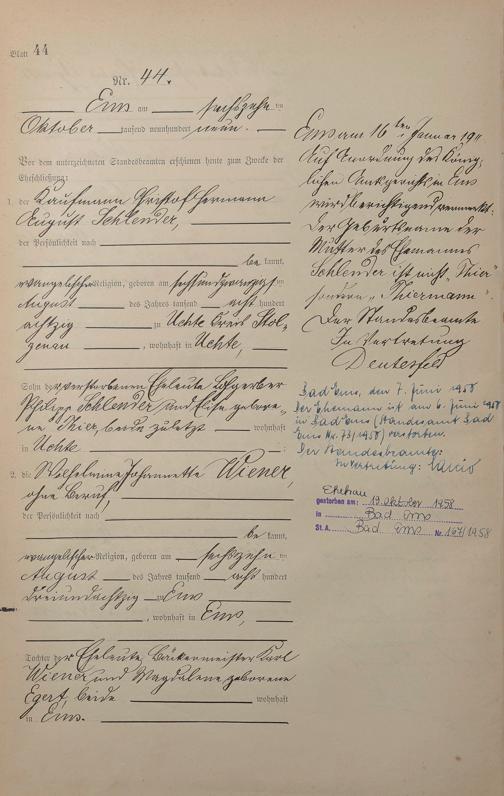 Blatt 44
Nr. 44.
Ems am sechszehn ten
Oktober tausend neunhundert neun.
Vor dem unterzeichneten Standesbeamten erschienen heute zum Zwecke der
Eheschließung:
1. der Kaufmann Christof Hermann
August Schlender,
der Persönlichkeit nach
be kannt,
evangelischer Religion, geboren am sechsundzwanzigsten
August des Jahres tausend acht hundert
achtzig zu Uchte Kreis Stol-
zenau, wohnhaft in Uchte,
Sohn der verstorbenen Eheleute Lohgerber
Philipp Schlender und Elise gebore-
ne Thier, beide zuletzt wohnhaft
in Uchte
2. die Johannette Wiener,
ohne Beruf,
der Persönlichkeit nach
be kannt,
evangelischer Religion, geboren am sechszehn ten
August des Jahres tausend acht hundert
dreiundachtzig zu Ems
, wohnhaft in Ems,
Tochter der Eheleute, Bäckermeister Karl
Wiener und Magdalene geborene
Egert, beide wohnhaft
in Ems.
Ems am 16ten Januar 19
Auf Anordnung des König-
lichen Amtsgerichts in Ems
wird berichtigend vermerkt:
Der Geburtsname der
Mutter des Ehemanns
Schlender ist nicht „Thier"
sondern „Thiermann"
Der Standesbeamte
In Vertretung
Bad Ems, den 7. Juni 1958
Der Ehemann ist am 6. Juni 1958
in Bad Ems (Standesamt Bad
Ems Nr. 73/1958) verstorben.
Der Standesbeamte:
In Vertretung:
Ehefrau
gestorben am: 19. Oktober 1958
in Bad Ems
St. A. Bad Ems Nr. 127/1958